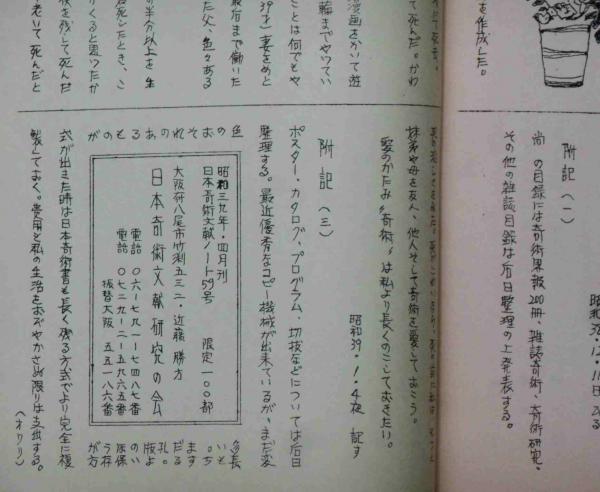 を作成した。
附記(一)
尚 の目録には奇術界報200冊、雑誌奇術、奇術研究、
その他の雑誌目録は后日整理の上発表する。
て死んだ。かわ
漫画をかいて遊
臨までやってい
ことは何でもや
39才で妻をめと
最后まで働いた
た父、色々ある
の半分以上を生
死したとき、こ
くると思ったか
後を残して死んだ
老いて死んだと
妹弟や母を友人、他人そして奇術を愛しておこう。
髪のかたみ“奇術”は私より長くのこしておきたい。
昭和39・1・4夜 記す
附記(三)
ポスター、カタログ、プログラム、切抜などについては后日
整理する。最近優秀なコピー機械が出来ているが、まだ変
色のおそれのあるものが
昭和三九年・四月刊
日本奇術文献ノート59号 限定一〇〇部
大阪府八尾市竹渕五三二・近藤 勝方
日本奇術文献研究の会
電話 〇六-七九一-七四八七番
電話 〇七二九-二-五九六五番
振替大阪 五五一八六番
多い。まだ孔版のほうが
長もちする。よい保存方
式が出きた時は日本奇術書も長く残る方式でより完全に複
製しておく。費用と私の生活をおびやかさぬ限りは支出する。
(オワリ)